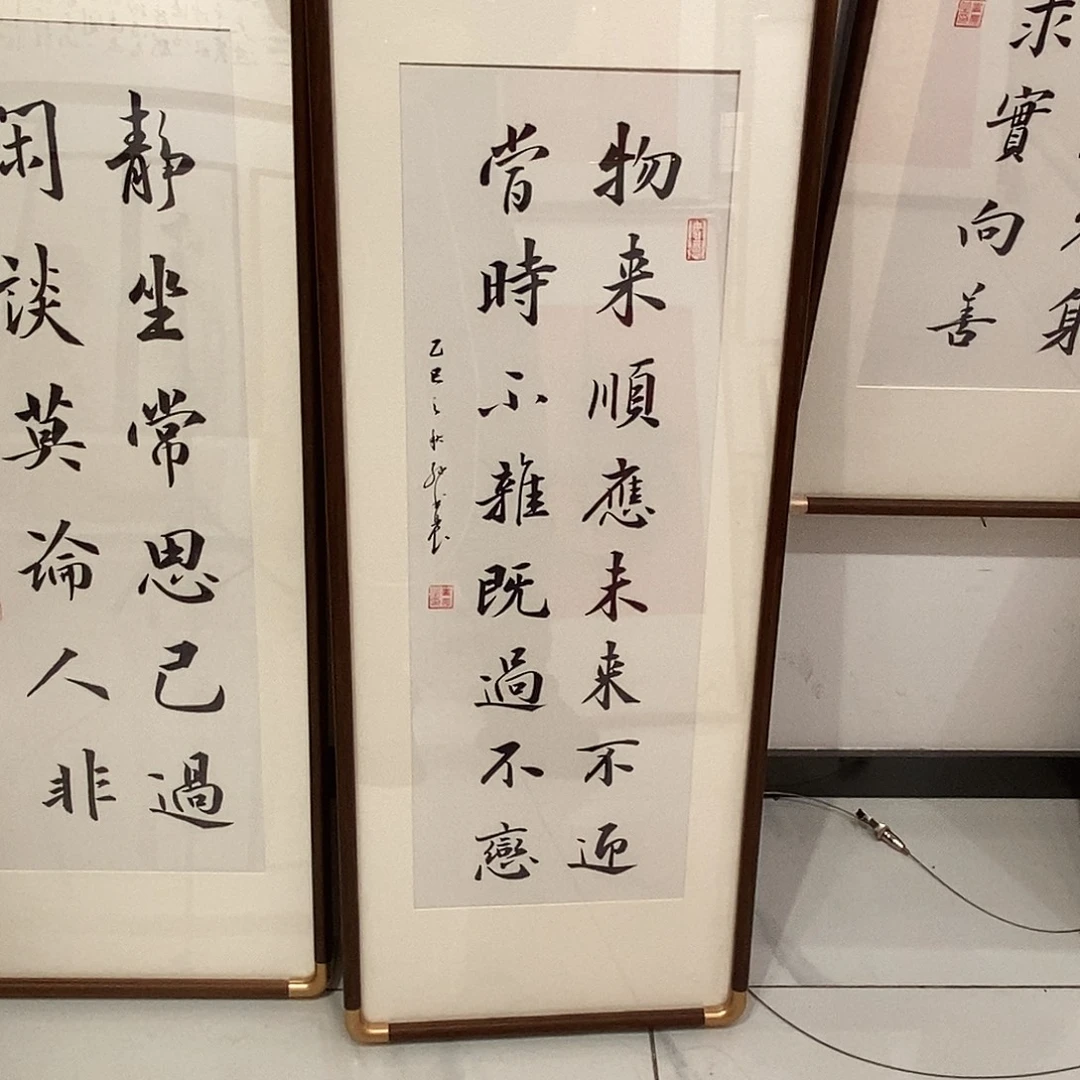 身
求實向善
物来順應未来不迎
當時不雜既過不戀
乙巳之秋
静坐常思己過
閑談莫論人非